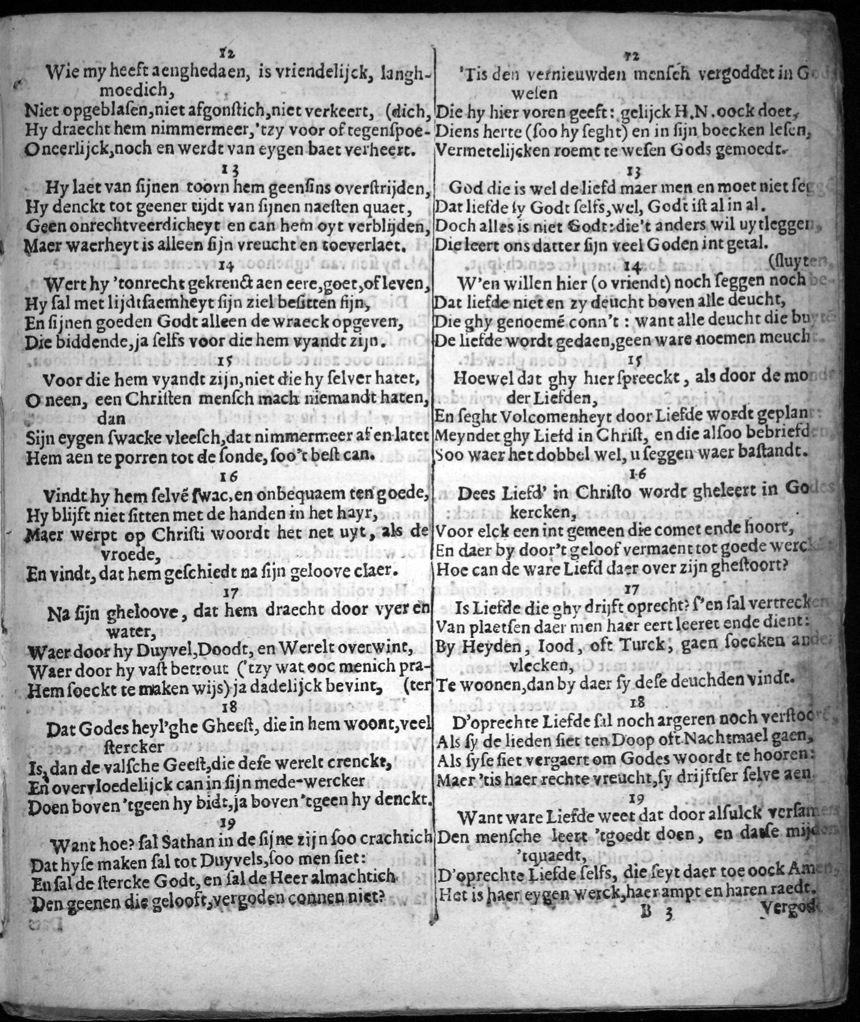 12
Wie my heeft aenghedaen, is vriendelijck, langh-
moedich,
Niet opgeblasen, niet afgonſtich, niet verkeert, (dich,
Hy draecht hem nimmermeer, 'tzy voor of tegenſpoe-
Oneerlijck, noch en werdt van eygen baet verheert.
13
Hy laet van ſijnen toorn hem geenſins overſtrijden,
Hy denckt tot geener tijdt van ſijnen naeſten quaet,
Geen onrechtveerdicheyt en can hem oyt verblijden,
Maer waerheyt is alleen ſijn vreucht en toeverlaet.
14
Wert hy 'tonrecht gekrenckt aen eere, goet, of leven,
Hy ſal met lijdtſaemheyt ſijn ziel beſitten fijn,
En ſijnen goeden Godt alleen de wraeck opgeven,
Die biddende, ja ſelfs voor die hem vyandt zijn.
15
Voor die hem vyandt zijn, niet die hy ſelver hatet,
O neen, een Chriſten menſch mach niemandt haten,
dan
Sijn eygen ſwacke vleeſch, dat nimmermeer af en latet
Hem aen te porren tot de ſonde, ſoo't beſt can.
16
Vindt hy hem ſelvē ſwac, en onbequaem ten goede,
Hy blijft niet ſitten met de handen in het hayr,
Maer werpt op Chriſti woordt het net uyt, als de
vroede,
En vindt, dat hem geſchiedt na ſijn geloove claer.
17
Na ſijn gheloove, dat hem draecht door vyer en
water,
Waer door hy Duyvel, Doodt, en Werelt overwint,
Waer door hy vaſt betrout ('tzy wat ooc menich pra-
Hem ſoeckt te maken wijs) ja dadelijck bevint, (ter
18
Dat Godes heyl'ghe Gheeſt, die in hem woont, veel
ſtercker
Is, dan de valſche Geeſt, die deſe werelt crenckt,
En overvloedelijck can in ſijn mede-wercker
Doen boven 'tgeen hy bidt, ja boven 'tgeen hy denckt.
19
Want hoe? ſal Sathan in de ſijne zijn ſoo crachtich
Dat hyſe maken ſal tot Duyvels, ſoo men ſiet:
En ſal de ſtercke Godt, en ſal de Heer almachtich
Den geenen die gelooft, vergoden connen niet?
12
'Tis den vernieuwden menſch vergoddet in Gods
weſen
Die hy hier voren geeft: gelijck H. N. oock doet,
Diens herte (ſoo hy ſeght) en in ſijn boecken leſen,
Vermetelijcken roemt te weſen Gods gemoedt.
13
God die is wel de liefd maer men en moet niet
Dat liefde ſy Godt ſelfs, wel, Godt iſt al in al.
Doch alles is niet Godt: die't anders wil uytleggen,
Die leert ons datter ſijn veel Goden int getal.
14 (ſluyten,
W'en willen hier (o vriendt) noch ſeggen noch be-
Dat liefde niet en zy deucht boven alle deucht,
Die ghy genoemē conn't: want alle deucht die buyte
De liefde wordt gedaen, geen ware noemen meucht
15
Hoewel dat ghy hier ſpreeckt, als door de monde
der Liefden,
En ſeght Volcomenheyt door Liefde wordt geplant:
Meyndet ghy Liefd in Chriſt, en die alſoo bebriefden,
Soo waer het dobbel wel, u ſeggen waer baſtandt.
16
Dees Liefd' in Chriſto wordt gheleert in Godes
kercken,
Voor elck een int gemeen die comet ende hoort,
En daer by door't geloof vermaent tot goede wercken
Hoe can de ware Liefd daer over zijn gheſtoort?
17
Is Liefde die ghy drijft oprecht? ſ'en ſal vertrecken
Van plaetſen daer men haer eert leeret ende dient:
By Heyden, Iood, oft Turck, gaen ſoecken ander
vlecken,
Te woonen, dan by daer ſy deſe deuchden vindt.
18
D'oprechte Liefde ſal noch argeren noch verſtooren,
Als ſy de lieden ſiet ten Doop oft Nachtmael gaen,
Als ſyſe ſiet vergaert om Godes woordt te hooren:
Maer 'tis haer rechte vreucht, ſy drijftſer ſelve aen.
19
Want ware Liefde weet dat door alſulck verſamen
Den menſche leert 'tgoedt doen, en datſe mijden
'tquaedt,
D'oprechte Liefde ſelfs, die ſeyt daer toe oock Amen,
Het is haer eygen werck, haer ampt en haren raedt.
B 3 Vergod